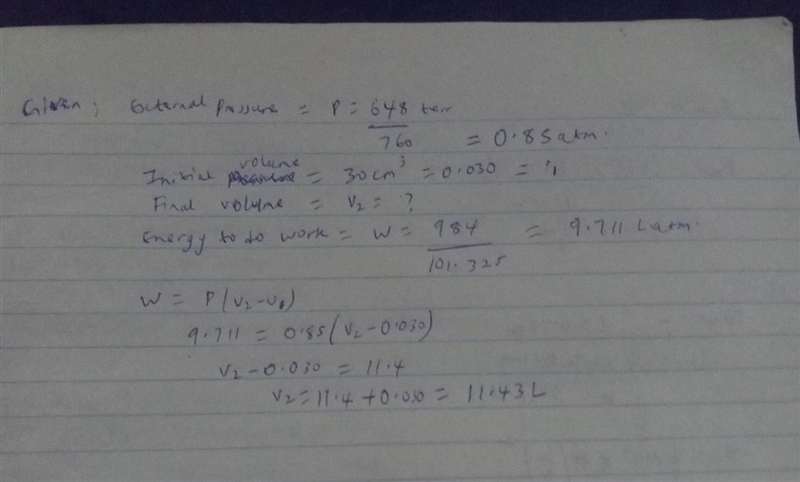 Given; External Pressure = P = 648 torr
760 = 0.85 atm.
Initial volume = 30cm³ = 0.030 = V₁
Final volume = V₂ = ?
Energy to do work = W = 984 = 9.711 L atm.
101.325
W = P(V₂-V₁)
9.711 = 0.85(V₂-0.030)
V₂-0.030 = 11.4
V₂=11.4+0.030 = 11.43L